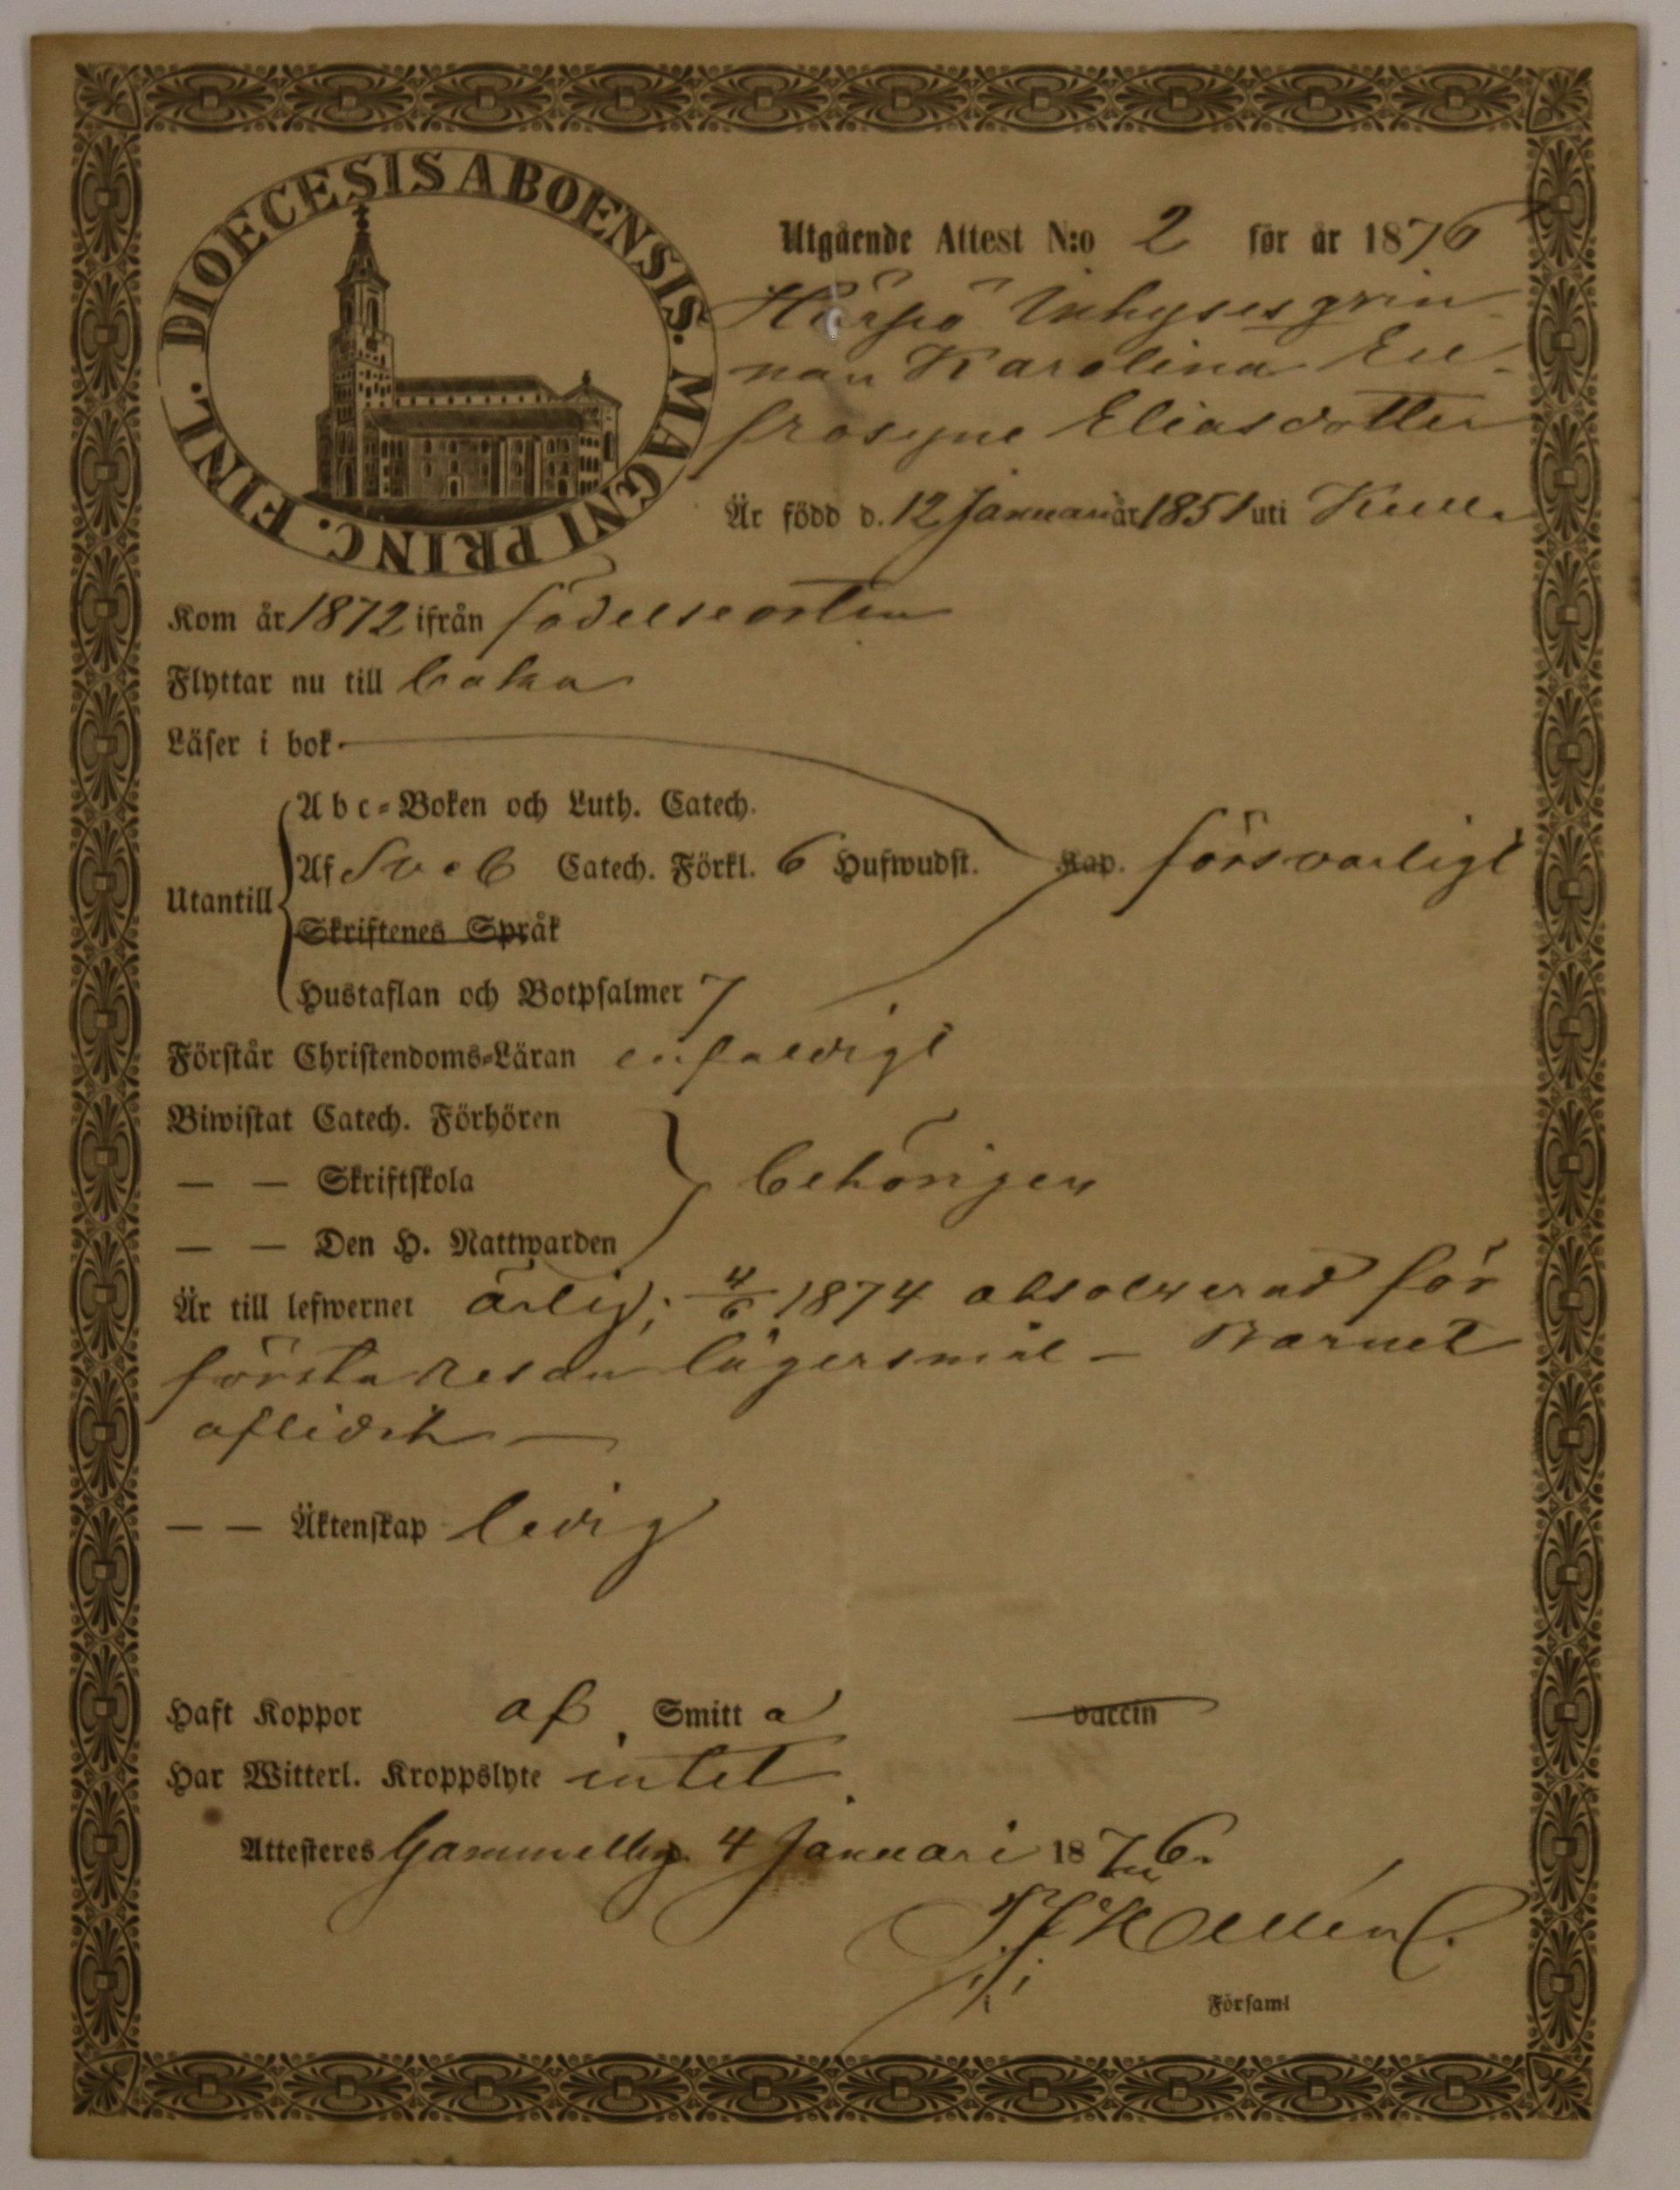 DIOECESIS ABOENSIS. MAGNI PRINC. FINL.
Utgående Attest N:o 2 för år 1876
Härpö Inhysesqvin-
nan Karolina Eu-
frosyne Eliasdotter
Är född d. 12 Januari år 1851 uti Kulla
Kom år 1872 ifrån födelseorten
Flyttar nu till baka
Läser i bok
Abc-Boken och Luth. Catech.
Utantill Af Sveb Catech. Förkl. 6 Hufwudst. Kap. försvarligt
Skriftenes Språk
Hustaflan och Botpsalmer 7
Förstår Christendoms-Läran enfaldigt
Biwistat Catech. Förhören
— — Skriftskola behörigen
— — Den H. Nattwarden
Är till lefwernet ärlig; 4/6 1874 absolverad för
första resan lägersmål – Barnet
aflidit —
— — Äktenskap ledig
Haft Koppor af Smitta vaccin
Har Witterl. Kroppslyte intet
Attesteres Gammelby 4 Januari 1876.
Församl